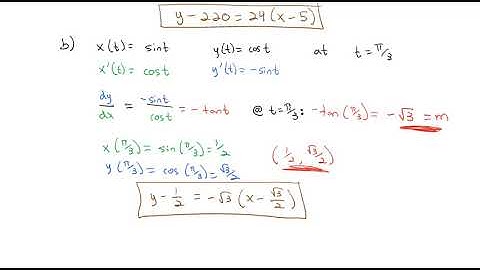 y-220=24(x-5)
b) x(t)= sint y(t)=cost at t=π/3
x'(t)= cost y'(t)=-sint
dy/dx = -sint/cost = -tant @ t=π/3: -tan(π/3)= -√3 =m
x(π/3)= sin(π/3)=1/2 (1/2, √3/2)
y(π/3)= cos(π/3)=√3/2
y-1/2 = -√3(x-√3/2)